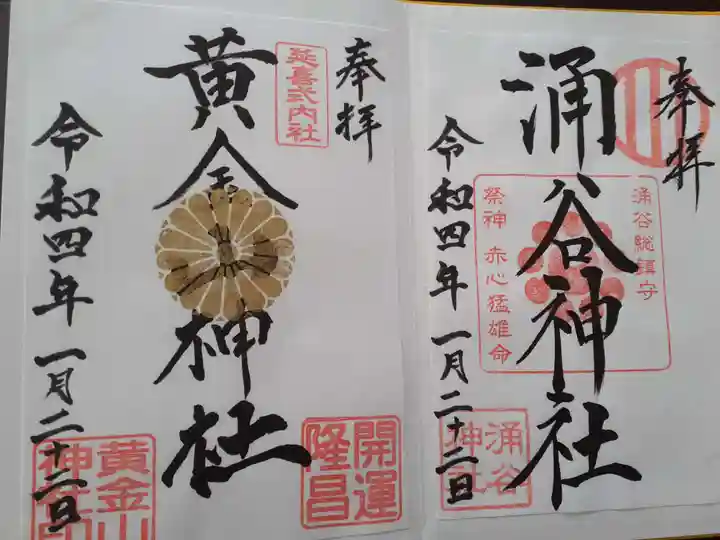 奉拝
涌谷神社
涌谷総鎮守
祭神 赤心猛雄命
令和四年 一月二十二日
涌谷
神社
奉拝
延喜式内社
黄金
神社
令和四年 一月二十二日
開運
隆昌
黄金山